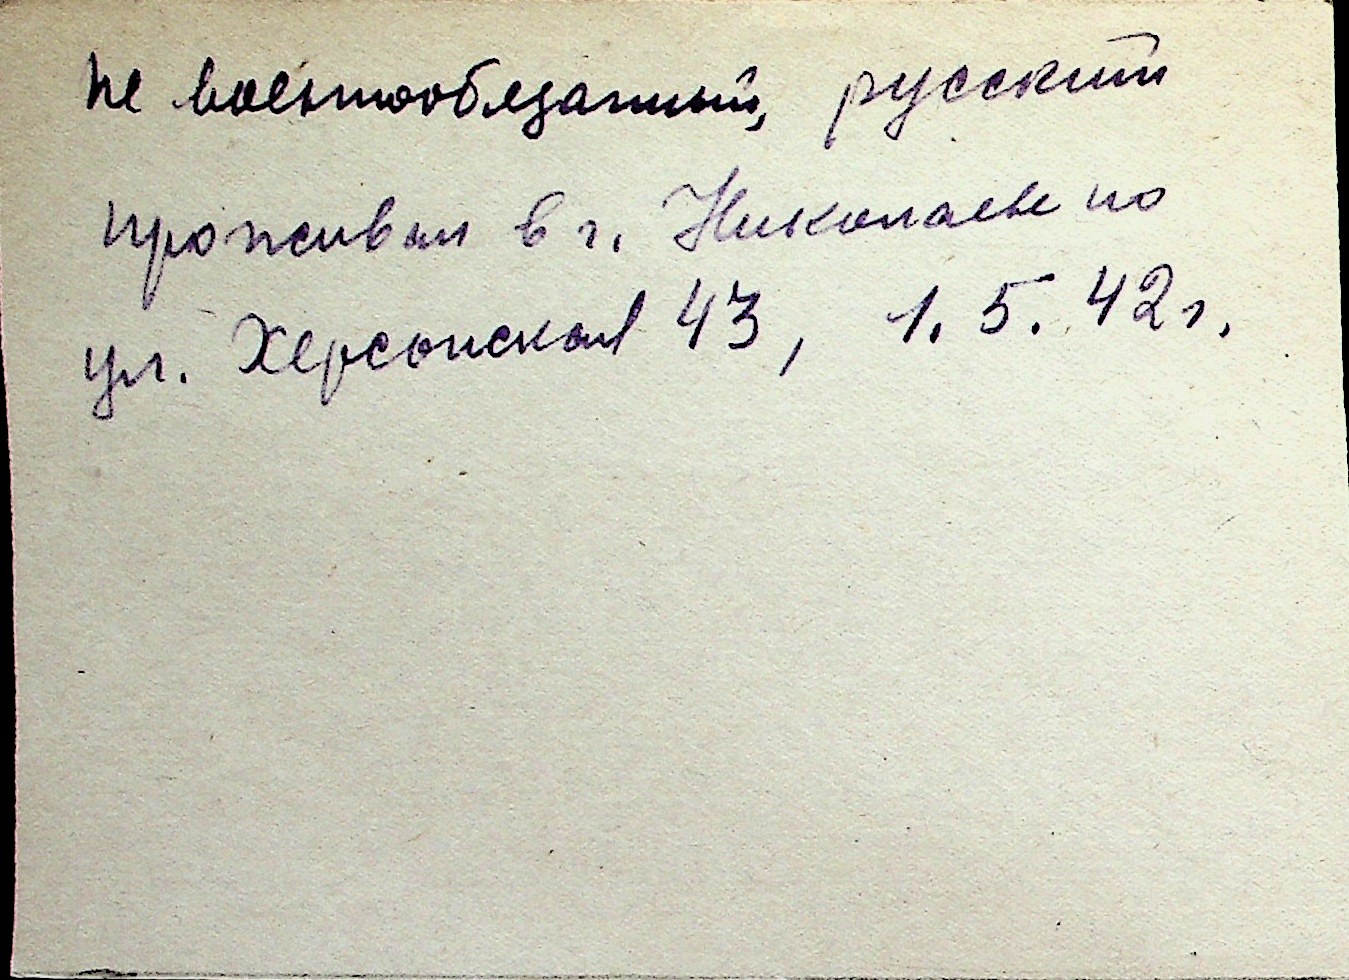 не военнообязанный, русский
проживал в г. Николаеве по
ул. Херсонская 43, 1.5.42г.